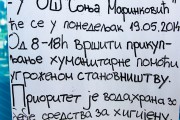 У ОШ "Соња Маринковић"
ће се у понедељак 19.05.2014
Од 8-18h вршити прикуп-
љање хуманитарне помоћи
угроженом становништву.
Приоритет је вода, храна за
бебе средства за хигијену.